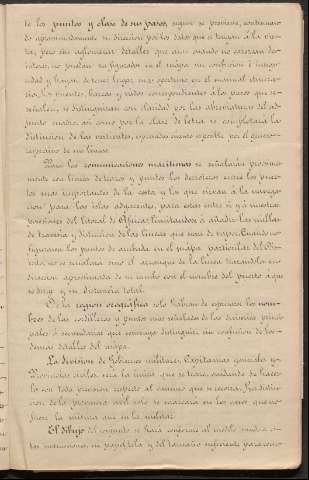 te los puntos y clase de sus pasos, segun se previene, continuan-
do aproximadamente su direccion por los datos que se tengan á la vis-
ta, pero sin aglomerar detalles que aun cuando no carezcan de
interes, no puedan ser figurados en el mapa sin confusion é integri-
dad y hayan de tener lugar mas oportuno en el manual itinera-
rio, los puentes, barcas y vados correspondientes á los pasos que se
señalen, se distinguiran con claridad por las abreviaturas del ad-
junto cuadro, asi como por la clase de letra se completará la
distincion de las vertientes, expresados cuanto es posible por el grueso
respectivo de sus lineas.
Para las comunicaciones maritimas se señalarán proxima-
mente con lineas de trazos y puntos los derroteros entre los puer-
tos mas importantes de la costa, y los que sirvan á la navega-
cion para las islas adyacentes, para estas entre si y á nuestras
posesiones del litoral de Africa, limitandose á añadir las millas
de travesia y distincion de las lineas que sean de vapor. Cuando no
figurasen los puntos de arribada en el mapa particular del Dis-
trito, no se señalará sino el arranque de la linea dandole la in-
dicacion aproximada de su rumbo con el nombre del puerto á que
se dirige y su distancia total.
De la region orográfica solo habrán de expresarse los nom-
bres de las cordilleras y puntos mas señalados de las divisorias princi-
pales ó secundarias que convenga distinguir sin confusion de los de-
mas detalles del mapa.
La division de Gobiernos militares, Capitanias generales y
Provincias civiles será la única que se trace, cuidando de hacer-
lo con toda precision respecto al camino que se recorra. La distin-
cion de la provincia civil solo se marcará en los casos que no
fuere la misma que en la militar.
El dibujo del conjunto se hará conforme al modelo unido á es-
tas instrucciones, en papel tela y del tamaño suficiente para com-